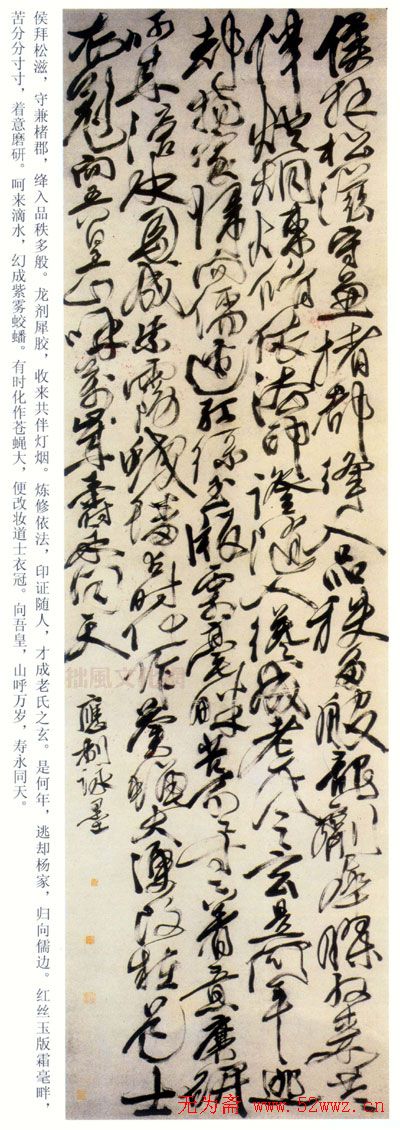 侯拜松滋守兼楮郡絳入品秩多般龍劑犀膠收來共
伴燈烟煉修依法印證隨人纔成老氏之玄是何年逃
却楊家歸向儒邊紅絲玉版霜毫畔苦分分寸寸着意磨研
呵來滴水幻成紫霧蛟蟠有時化作蒼蠅大便改粧道士
衣冠向吾皇山呼萬歲壽永同天
應制詠墨
侯拜松滋，守兼楮郡，绛入品秩多般。龙剂犀胶，收来共伴灯烟。炼修依法，印证随人，才成老氏之玄。是何年，逃却杨家，归向儒边。红丝玉版霜毫畔，
苦分分寸寸，着意磨研。呵来滴水，幻成紫雾蛟蟠。有时化作苍蝇大，便改妆道士衣冠。向吾皇，山呼万岁，寿永同天。
拙風文化網
无为斋 www.52wwz.cn